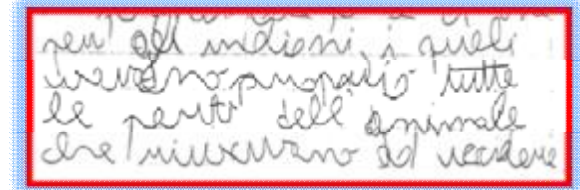 per gli indiani, i quali
usavano proprio tutte
le parti dell'animale
che riuscivano ad uccidere